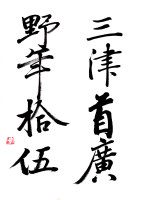 三津首廣
野年拾伍